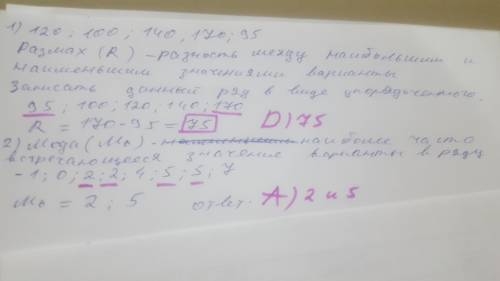 1) 120; 100; 140, 170; 95
Размах (R) - разность между наибольшим и
наименьшим значениями варианты
Записать данный ряд в виде упорядоченного.
95; 100; 120; 140; 170
R = 170 - 95 = 75 D) 75
2) Мода (Mo) - наиболее часто
встречающееся значение варианты в ряду
-1; 0; 2; 2; 4; 5; 5; 7
Mo = 2; 5 ответ: A) 2 и 5